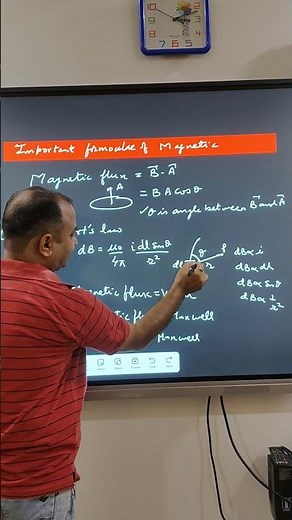 Important formulae of Magnetic
Magnetic flux = B⃗ · A⃗
A
= BA cosθ
✓ θ is angle between B⃗ and A⃗
t's law
dB = μ₀/4π i dl sinθ/r²
θ
r
P
dB ∝ i
dB ∝ dl
dB ∝ sinθ
dB ∝ 1/r²
netic flux =
tic flux
Maxwell